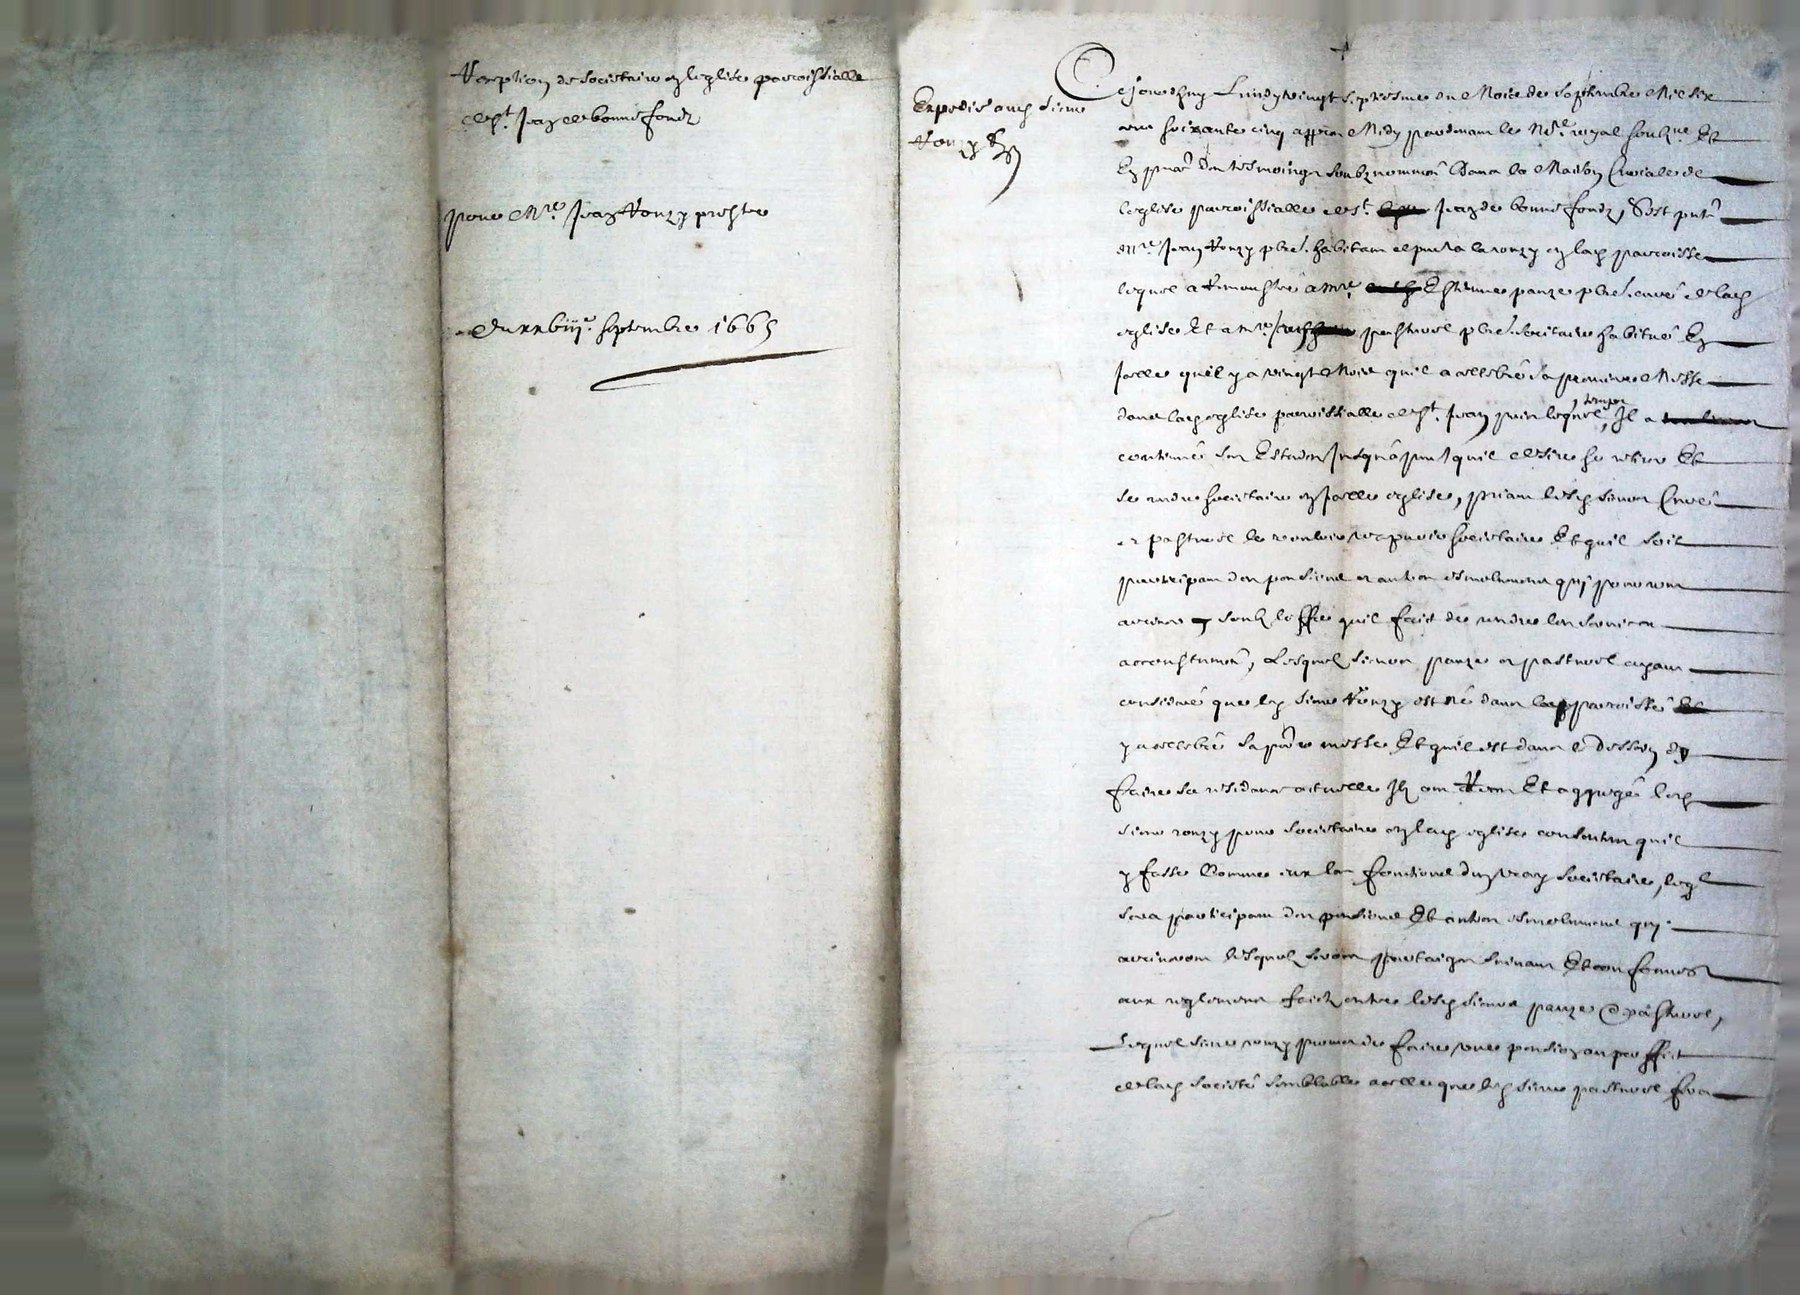 Reception de societaire en leglise parroissialle
de St. Jean de bonnefondz
pour Mre. Jean Ronzy prestre
Du xxviije. septembre 1665
Expedié aud. sieur
Ronzy
Ce jourdhuy Lundy vingt septiesme du Mois de septembre Mil six
cens soixante cinq appres Midy pardevant le Nore. royal soubzné. Et
En presance des tesmoings soubznommés Dans la Maison Curiale de
leglise parroissialle de St. Jean de bonnefondz, Sest presenté
Mre. Jean Ronzy pbre. habitant en lad. parroisse
lequel a Remonstré a Mre. Estienne panze pbre. curé de lad.
eglise Et a Mre. pastural pbre. societaire habitué En
Icelle quil y a vingt Mois quil a celebré sa premiere Messe
dans lad. eglise parroissialle de St. Jean puis lequel temps, Il a
continué son Jusqu'a present quil desire se retirer Et
se rendre societaire en Icelle eglise, priant lesd. sieurs Curé
et pastural le vouloir recepvoir societaire Et quil soit
participant des pensions et autres esmoluments quy pourront
advenir soubz loffre quil faict de rendre les services
accoustumés, Lesquelz sieurs panze et pastural ayant
consideré que led. sieur Ronzy est né dans lad. parroisse
y a celebré sa premre. messe Et quil est dans le dessein dy
faire sa residance actuelle Ilz ont Receu Et aggregé led.
sieur ronzy pour societaire en lad. eglise consentent quil
y fasse Comme eux les fonctions dun vray societaire, leql.
sera participant des pensions Et autres esmoluments quy
adviendront lesquelz seront partaigés suivant Et conformes
aux reglements faictz entre lesd. sieurs panze & pastural,
Lequel sieur ronzy promet de faire une pension au proffict
de lad. societé semblable a celle que led. sieur pastural fera